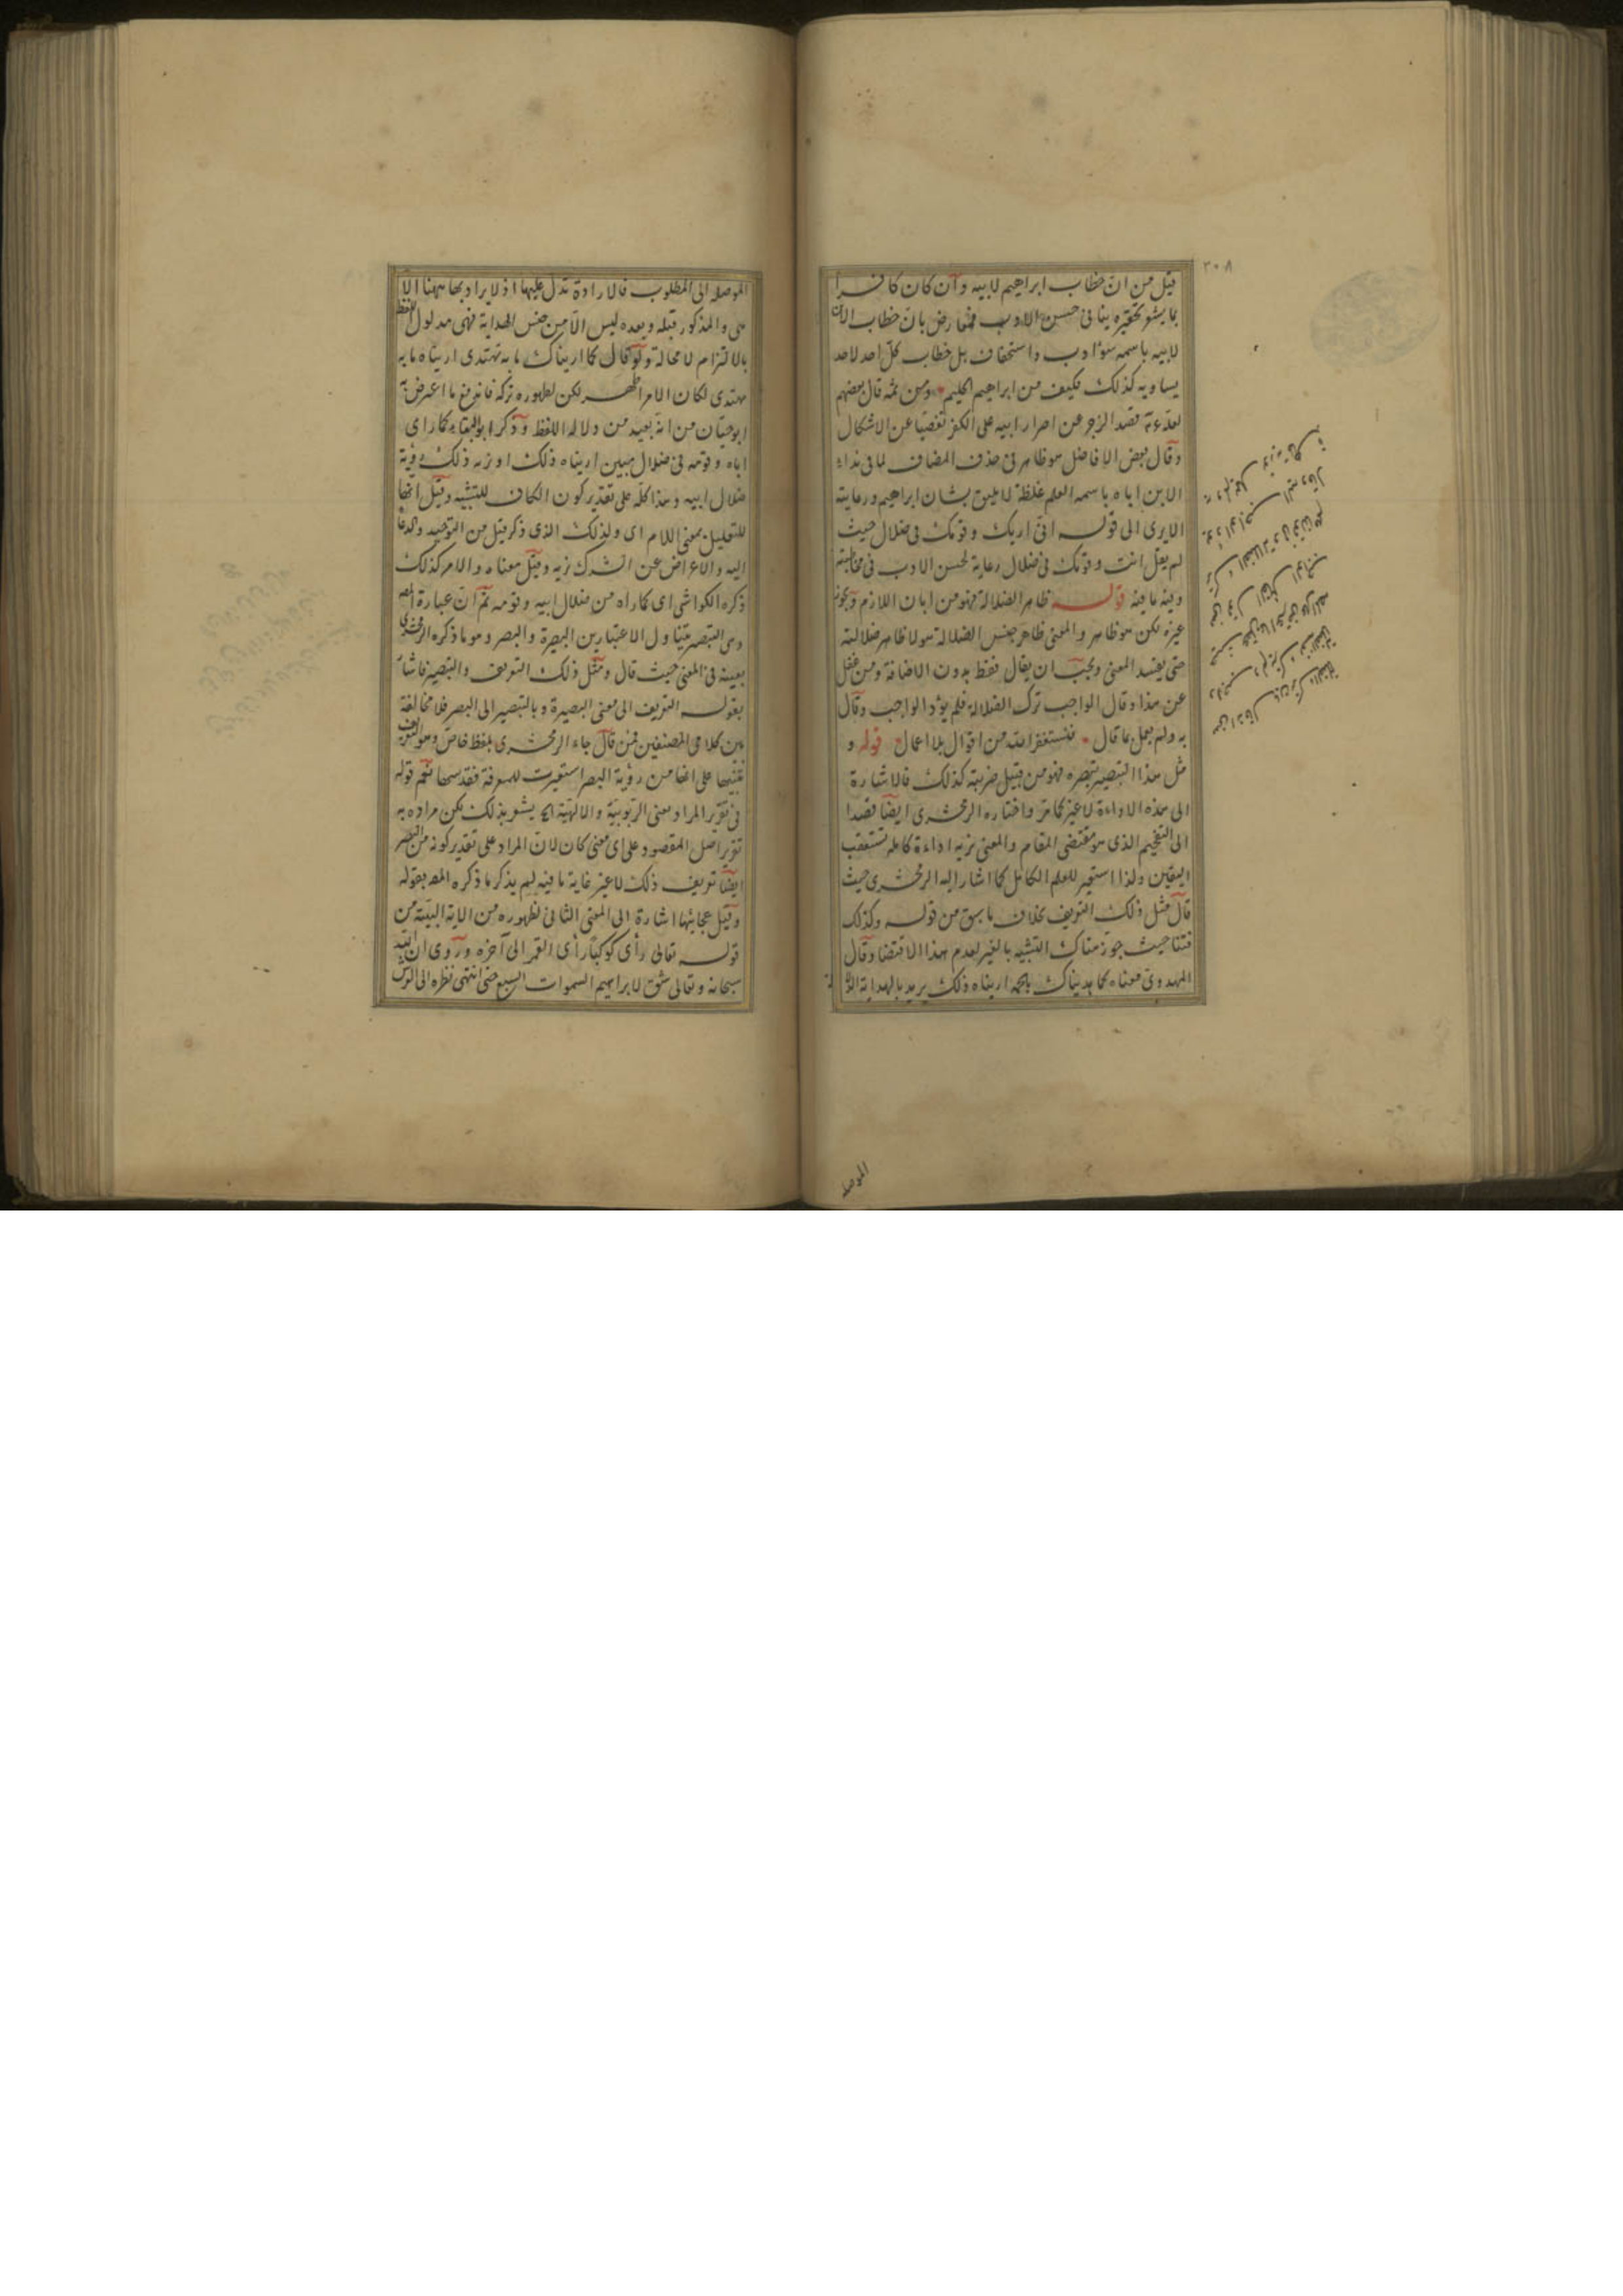 ٣٠٨
قيل من انّ خطاب ابراهيم لابيه وآن كان كافرا
بما يشعر تحقيره ينافى حسن الادب فمعارض بانّ خطاب الابن
لابيه باسمه سوٴ ادب واستخفاف بل خطاب كلّ احد لاحد
يساويه كذلك فكيف من ابراهيم الحليم ومن ثمه قال بعضهم
قصد الزجر عن اصرار ابيه على الكفر تفصيا عن الاشكال
وقال بعض الافاضل هو ظاهر فى حذف المضاف لما فى نداء
الابن اباه باسمه العلم غلظة لا يليق بشان ابراهيم ورعايته
الا يرى الى قوله انى اريك وقومك فى ضلال حيث
لم يقل انت وقومك فى ضلال رعاية لحسن الادب فى مخاطبته
وفيه ما فيه قوله ظاهر الضلالة فهو من ابان اللازم ويجوز
غيره لكن هو ظاهر والمعنى ظاهر جنس الضلالة هو لا ظاهر ضلالته
حتى يفسد المعنى ويجب ان يقال فقط بدون الاضافة ومن غفل
عن هذا وقال الواجب ترك الضلالة فلم يؤد الواجب وقال
به ولم يعمل بما قال فنستغفر الله من اقوال بلا اعمال قوله و
مثل هذا التبصير نبصره فهو من قبيل ضربته كذلك فالاشارة
الى هذه الاراءة لا غير كما مرّ واختاره الزمخشرى ايضا قصدا
الى التفخيم الذى هو مقتضى المقام والمعنى نريه اراءة كاملة تستعقب
اليقين ولذا استعير للعلم الكامل كما اشار اليه الزمخشرى حيث
قال مثل ذلك التعريف بخلاف ما سبق من قوله وكذلك
فتنا حيث جوّز هناك التشبيه بالغير لعدم هذا الاقتضا وقال
المهدوىّ معناه كما هديناك يا محمد اريناه ذلك يريد بالهداية
الموصلة
الموصلة الى المطلوب فالاراءة تدل عليها اذ لا يراد بها ههنا الا
هى والمذكور قبله وبعده ليس الا من جنس الهداية فهى مدلول اللفظ
بالالتزام لا محالة ولو قال كما اريناك ما به تهتدى اريناه ما به
يهتدى لكان الامر اظهر لكن لظهوره تركه فاندفع ما اعترض به
ابو حيّان من انه بعيد من دلالة اللفظ وذكر ابو البقاء كما راى
اباه وقومه فى ضلال مبين اريناه ذلك او نريه ذلك رؤية
ضلال ابيه وهذا كله على تقدير كون الكاف للتشبيه وقيل انها
للتعليل بمعنى اللام اى ولذلك الذى ذكر قبل من التوحيد والدعا
اليه والاعراض عن الشرك نريه وقيل معناه والامر كذلك
ذكره الكواشى اى كما راه من ضلال ابيه وقومه ثم ان عبارة المص
وهى التبصير يتناول الاعتبارين البصيرة والبصر وهو ما ذكره الزمخشرى
بعينه فى المعنى حيث قال ومثل ذلك التعريف والتبصير فاشار
بقوله التعريف الى معنى البصيرة وبالتبصير الى البصر فلا مخالفة
بين كلامى المصنفين فمن قال جاء الزمخشرى بلفظ خاص وهو التعريف
تنبيها على انها من رؤية البصر استعيرت للمعرفة فقد سها نعم قوله
فى تقرير المراد معنى الربوبية والالهية الخ يشعر بذلك لكن مراده به
تقرير اصل المقصود على اى معنى كان لان المراد على تقدير كونه من البصر
ايضا تعريف ذلك لا غير غاية ما فيه لم يذكر ما ذكره المص بقوله
وقيل عجائبها اشارة الى المعنى الثانى لظهوره من الاية البيّنة من
قوله تعالى رأى كوكبا رأى القمر الى آخره وروى ان الله
سبحانه وتعالى شق لابراهيم السموات السبع حتى انتهى نظره الى العرش